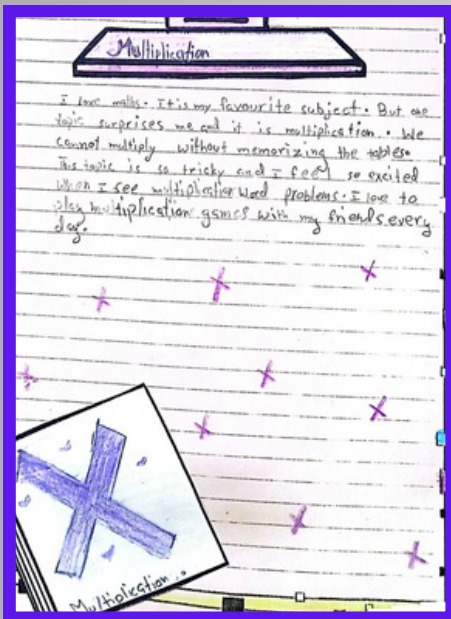 Multiplication
I love maths. It is my favourite subject. But one
topic surprises me and it is multiplication.. We
cannot multiply without memorizing the tables.
This topic is so tricky and I feel so excited
when I see multiplication word problems. I love to
play multiplication games with my friends every
day.
Multiplication..